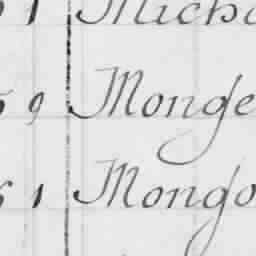 1 Micha
59 Monge
51 Mongo